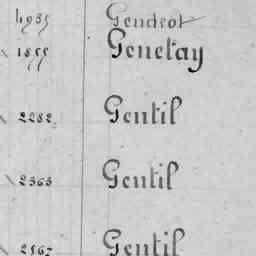 4935 Gendrot
1855 Genetay
2282 Gentil
2363 Gentil
2567 Gentil